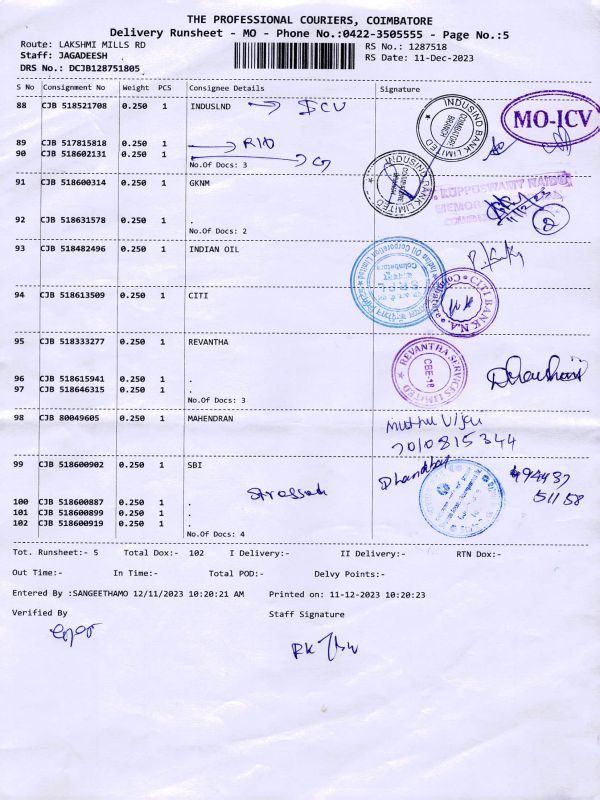 THE PROFESSIONAL COURIERS, COIMBATORE
Delivery Runsheet - MO - Phone No.:0422-3505555 - Page No.:5
Route: LAKSHMI MILLS RD
RS No.: 1287518
Staff: JAGADEESH
RS Date: 11-Dec-2023
DRS No.: DCJB128751805
S No Consignment No Weight PCS Consignee Details Signature
88 CJB 518521708 0.250 1 INDUSLND
INDUSIND BANK LIMITED
COIMBATORE BRANCH
MO-ICV
89 CJB 517815818 0.250 1
90 CJB 518602131 0.250 1
No.Of Docs: 3
INDUSIND BANK LIMITED
91 CJB 518600314 0.250 1 GKNM
KUPPUSWAMY NAIDU
MEMORIAL
11/12/23
2
92 CJB 518631578 0.250 1 .
No.Of Docs: 2
93 CJB 518482496 0.250 1 INDIAN OIL
Indian Oil Corporation Limited
Coimbatore
94 CJB 518613509 0.250 1 CITI
CITI BANK N.A.
Coimbatore
95 CJB 518333277 0.250 1 REVANTHA
REVANTHA SERVICES LIMITED
CBE-18
96 CJB 518615941 0.250 1 .
97 CJB 518646315 0.250 1 .
No.Of Docs: 3
98 CJB 80049605 0.250 1 MAHENDRAN
Muthu Vijay
7010815344
99 CJB 518600902 0.250 1 SBI
94437
51158
100 CJB 518600887 0.250 1 .
101 CJB 518600899 0.250 1 .
102 CJB 518600919 0.250 1 .
No.Of Docs: 4
Tot. Runsheet:- 5 Total Dox:- 102 I Delivery:- II Delivery:- RTN Dox:-
Out Time:- In Time:- Total POD:- Delvy Points:-
Entered By :SANGEETHAMO 12/11/2023 10:20:21 AM Printed on: 11-12-2023 10:20:23
Verified By Staff Signature